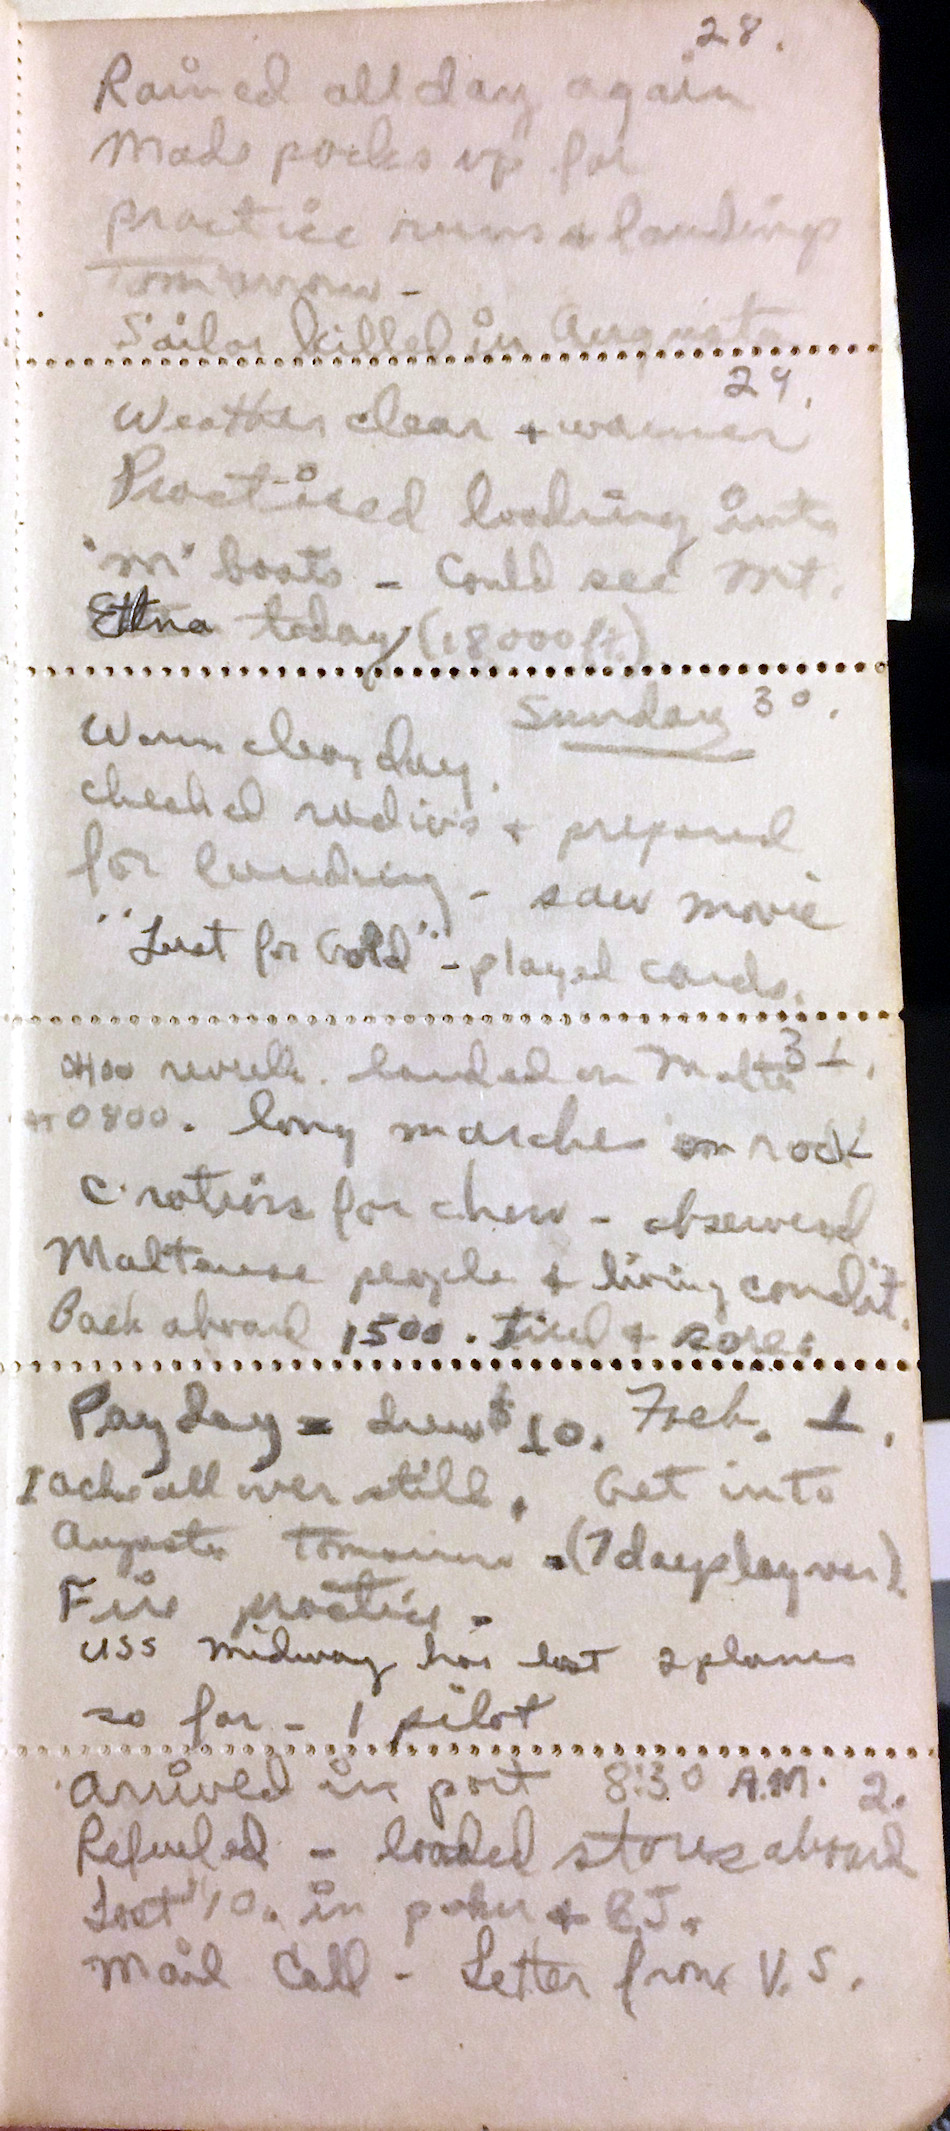 28.
Rained all day again
Made packs up for
practice runs + landings
Tomorrow -
Sailor killed in Augusta
29.
Weather clear + warmer
Practiced loading into
"M" boats - Could see Mt.
Etna today (18000 ft.)
Sunday 30.
Warm clear day.
checked radios + prepared
for landing - saw movie
"Lust for Gold" - played cards.
31.
0400 reveille. landed on Malta
at 0800. long marches on rock
C. rations for chow - observed
Malteese people + living condit.
Back aboard 1500. Tired + sore.
Pay day = drew $10. Feb. 1.
I ache all over still. Get into
Augusta Tomorrow. (7 days layover)
Fire practice.
USS Midway has lost 2 planes
so far - 1 pilot
Arrived in port 8:30 A.M. 2.
Refueled - loaded stores aboard
Lost $10. in poker +
Mail Call - Letter from V.S.